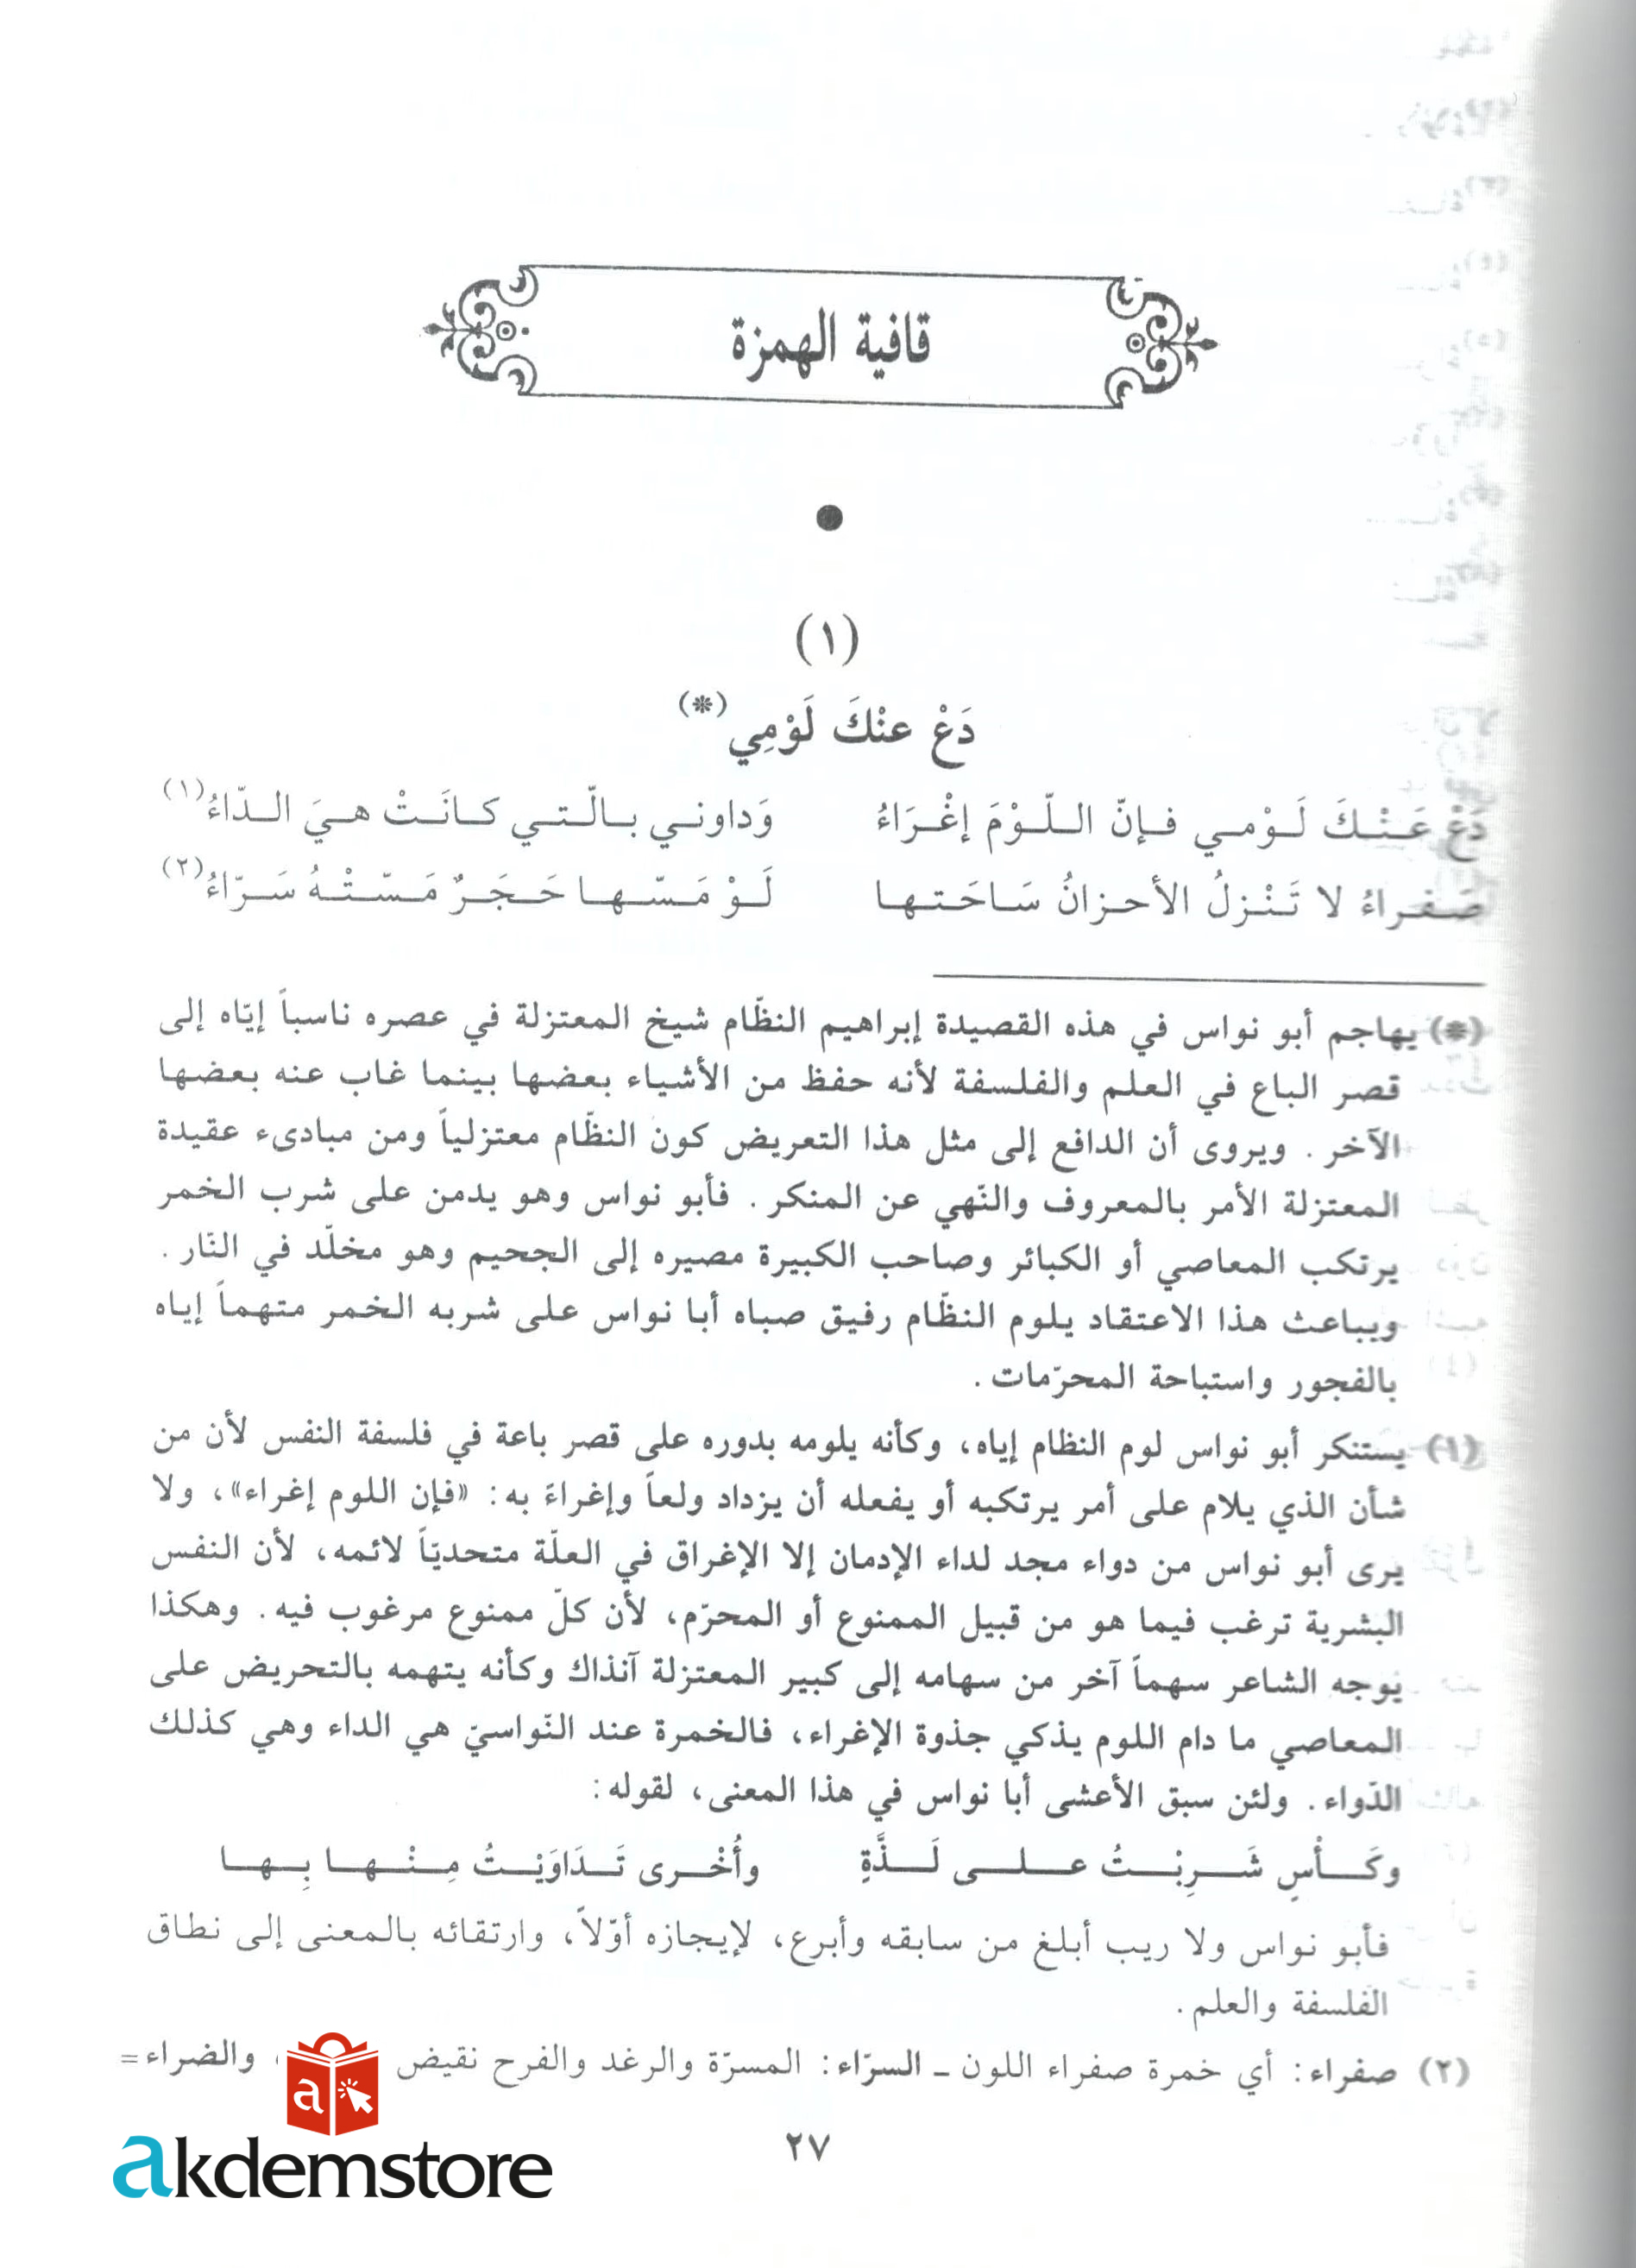 قافية الهمزة
(١)
دَعْ عنْكَ لَوْمِي(*)
دَعْ عَنْكَ لَوْمي فإنّ اللّوْمَ إغْرَاءُ وَداوني بالّتي كانَتْ هيَ الدّاءُ(١)
صَفراءُ لا تَنْزلُ الأحزانُ سَاحَتها لَوْ مَسّها حَجَرٌ مَسّتْهُ سَرّاءُ(٢)
(*) يهاجم أبو نواس في هذه القصيدة إبراهيم النظّام شيخ المعتزلة في عصره ناسباً إيّاه إلى
قصر الباع في العلم والفلسفة لأنه حفظ من الأشياء بعضها بينما غاب عنه بعضها
الآخر. ويروى أن الدافع إلى مثل هذا التعريض كون النظّام معتزلياً ومن مبادىء عقيدة
المعتزلة الأمر بالمعروف والنّهي عن المنكر. فأبو نواس وهو يدمن على شرب الخمر
يرتكب المعاصي أو الكبائر وصاحب الكبيرة مصيره إلى الجحيم وهو مخلّد في النّار.
ويباعث هذا الاعتقاد يلوم النظّام رفيق صباه أبا نواس على شربه الخمر متهماً إياه
بالفجور واستباحة المحرّمات.
(١) يستنكر أبو نواس لوم النظام إياه، وكأنه يلومه بدوره على قصر باعة في فلسفة النفس لأن من
شأن الذي يلام على أمر يرتكبه أو يفعله أن يزداد ولعاً وإغراءً به: «فإن اللوم إغراء»، ولا
يرى أبو نواس من دواء مجد لداء الإدمان إلا الإغراق في العلّة متحديّاً لائمه، لأن النفس
البشرية ترغب فيما هو من قبيل الممنوع أو المحرّم، لأن كلّ ممنوع مرغوب فيه. وهكذا
يوجه الشاعر سهماً آخر من سهامه إلى كبير المعتزلة آنذاك وكأنه يتهمه بالتحريض على
المعاصي ما دام اللوم يذكي جذوة الإغراء، فالخمرة عند النّواسيّ هي الداء وهي كذلك
الدّواء. ولئن سبق الأعشى أبا نواس في هذا المعنى، لقوله:
وكَأْسٍ شَرِبْتُ على لَذَّةٍ وأُخْرى تَدَاوَيْتُ مِنْها بِها
فأبو نواس ولا ريب أبلغ من سابقه وأبرع، لإيجازه أوّلاً، وارتقائه بالمعنى إلى نطاق
الفلسفة والعلم.
(٢) صفراء: أي خمرة صفراء اللون ـ السرّاء: المسرّة والرغد والفرح نقيض ، والضراء=
٢٧
a
akdemstore